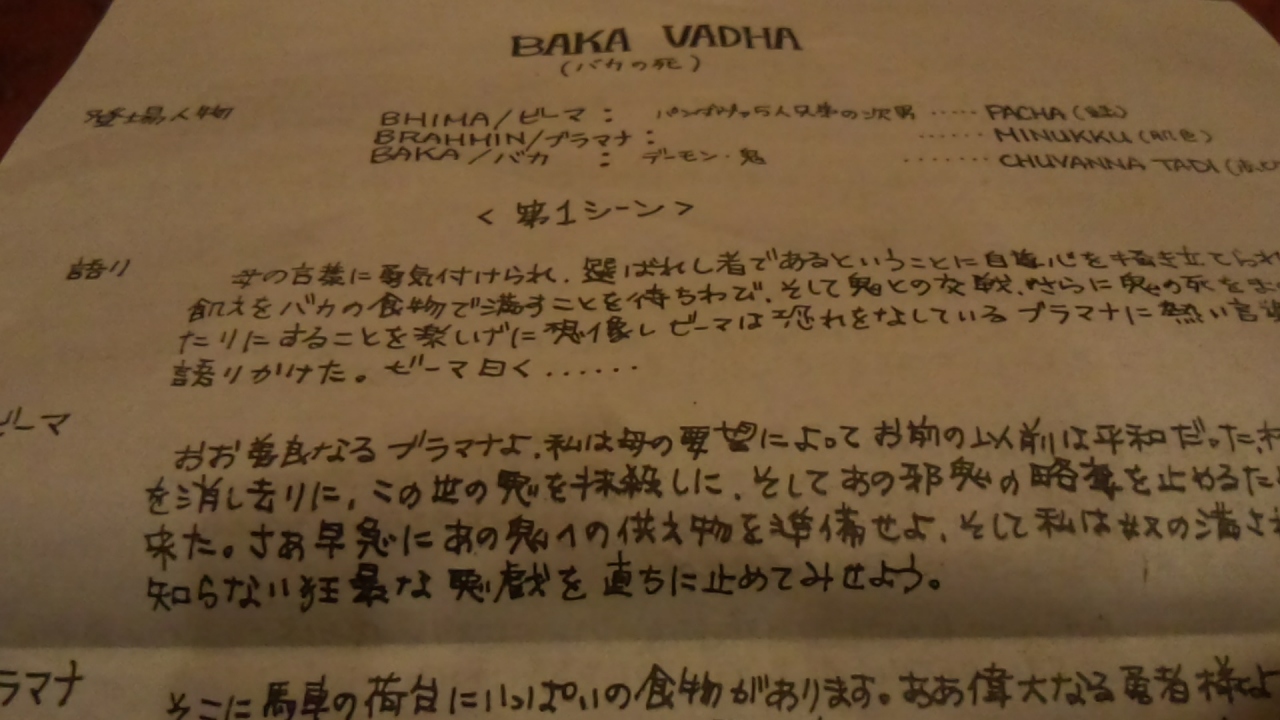 BAKA VADHA
(バカの死)
登場人物 BHIMA/ビーマ : 兄弟の次男 ····· PACHA
BRAHHIN/ブラマナ : ······ MINUKKU (肌色)
BAKA/バカ : デーモン·鬼 ······· CHUVANNA TADI
< 第1シーン >
語り 母の言葉に勇気付けられ、選ばれし者であるということに自尊心を掻き立てられ
飢えをバカの食物で満すことを待ちわび、そして鬼との交戦、さらに鬼の死を
たりにすることを楽しげに想像しビーマは恐れをなしているブラマナに熱い言
語りかけた。ビーマ曰く······
ビーマ
おお善良なるブラマナよ、私は母の要望によってお前の以前は平和だった
を消し去りに、この世の鬼を抹殺しに、そしてあの邪鬼の略奪を止めるた
来た。さあ早急にあの鬼への供え物を準備せよ、そして私は奴の満
知らない狂暴な悪戯を直ちに止めてみせよう。
ラマナ そこに馬車の荷台にいっぱいの食物があります。ああ偉大なる勇者様よ